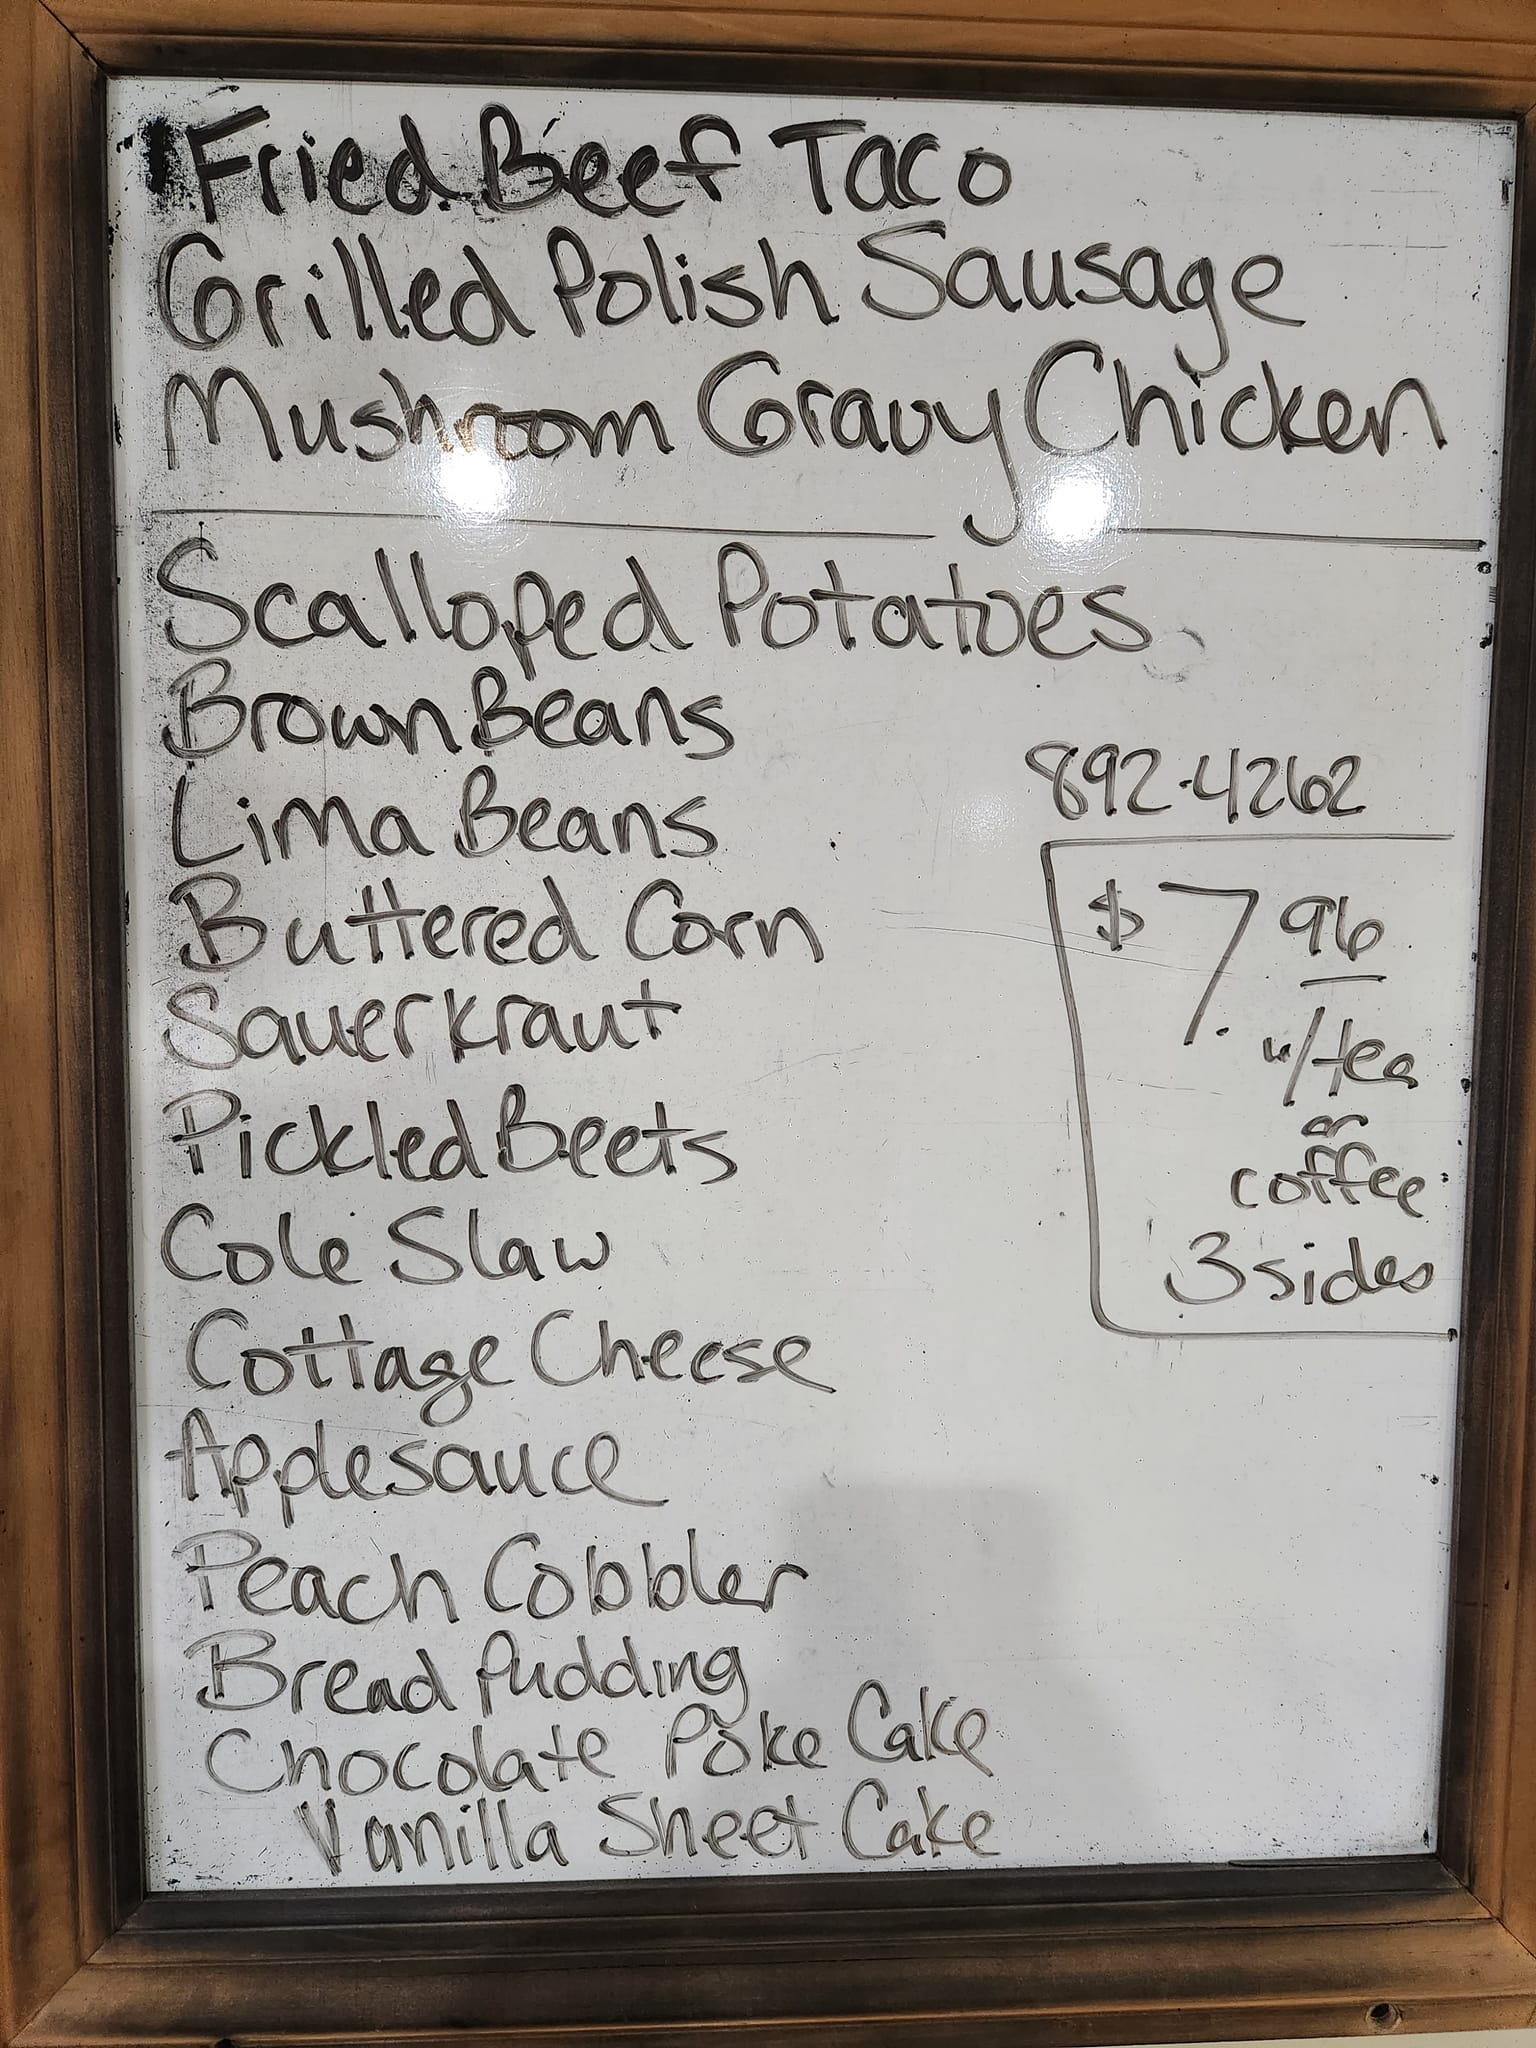 Fried Beef Taco
Grilled Polish Sausage
Mushroom Gravy Chicken
Scalloped Potatoes
Brown Beans
Lima Beans
Buttered Corn
Sauerkraut
Pickled Beets
Cole Slaw
Cottage Cheese
Applesauce
Peach Cobbler
Bread Pudding
Chocolate Poke Cake
Vanilla Sheet Cake
892-4262
$7.96
w/tea
or
coffee
3 sides